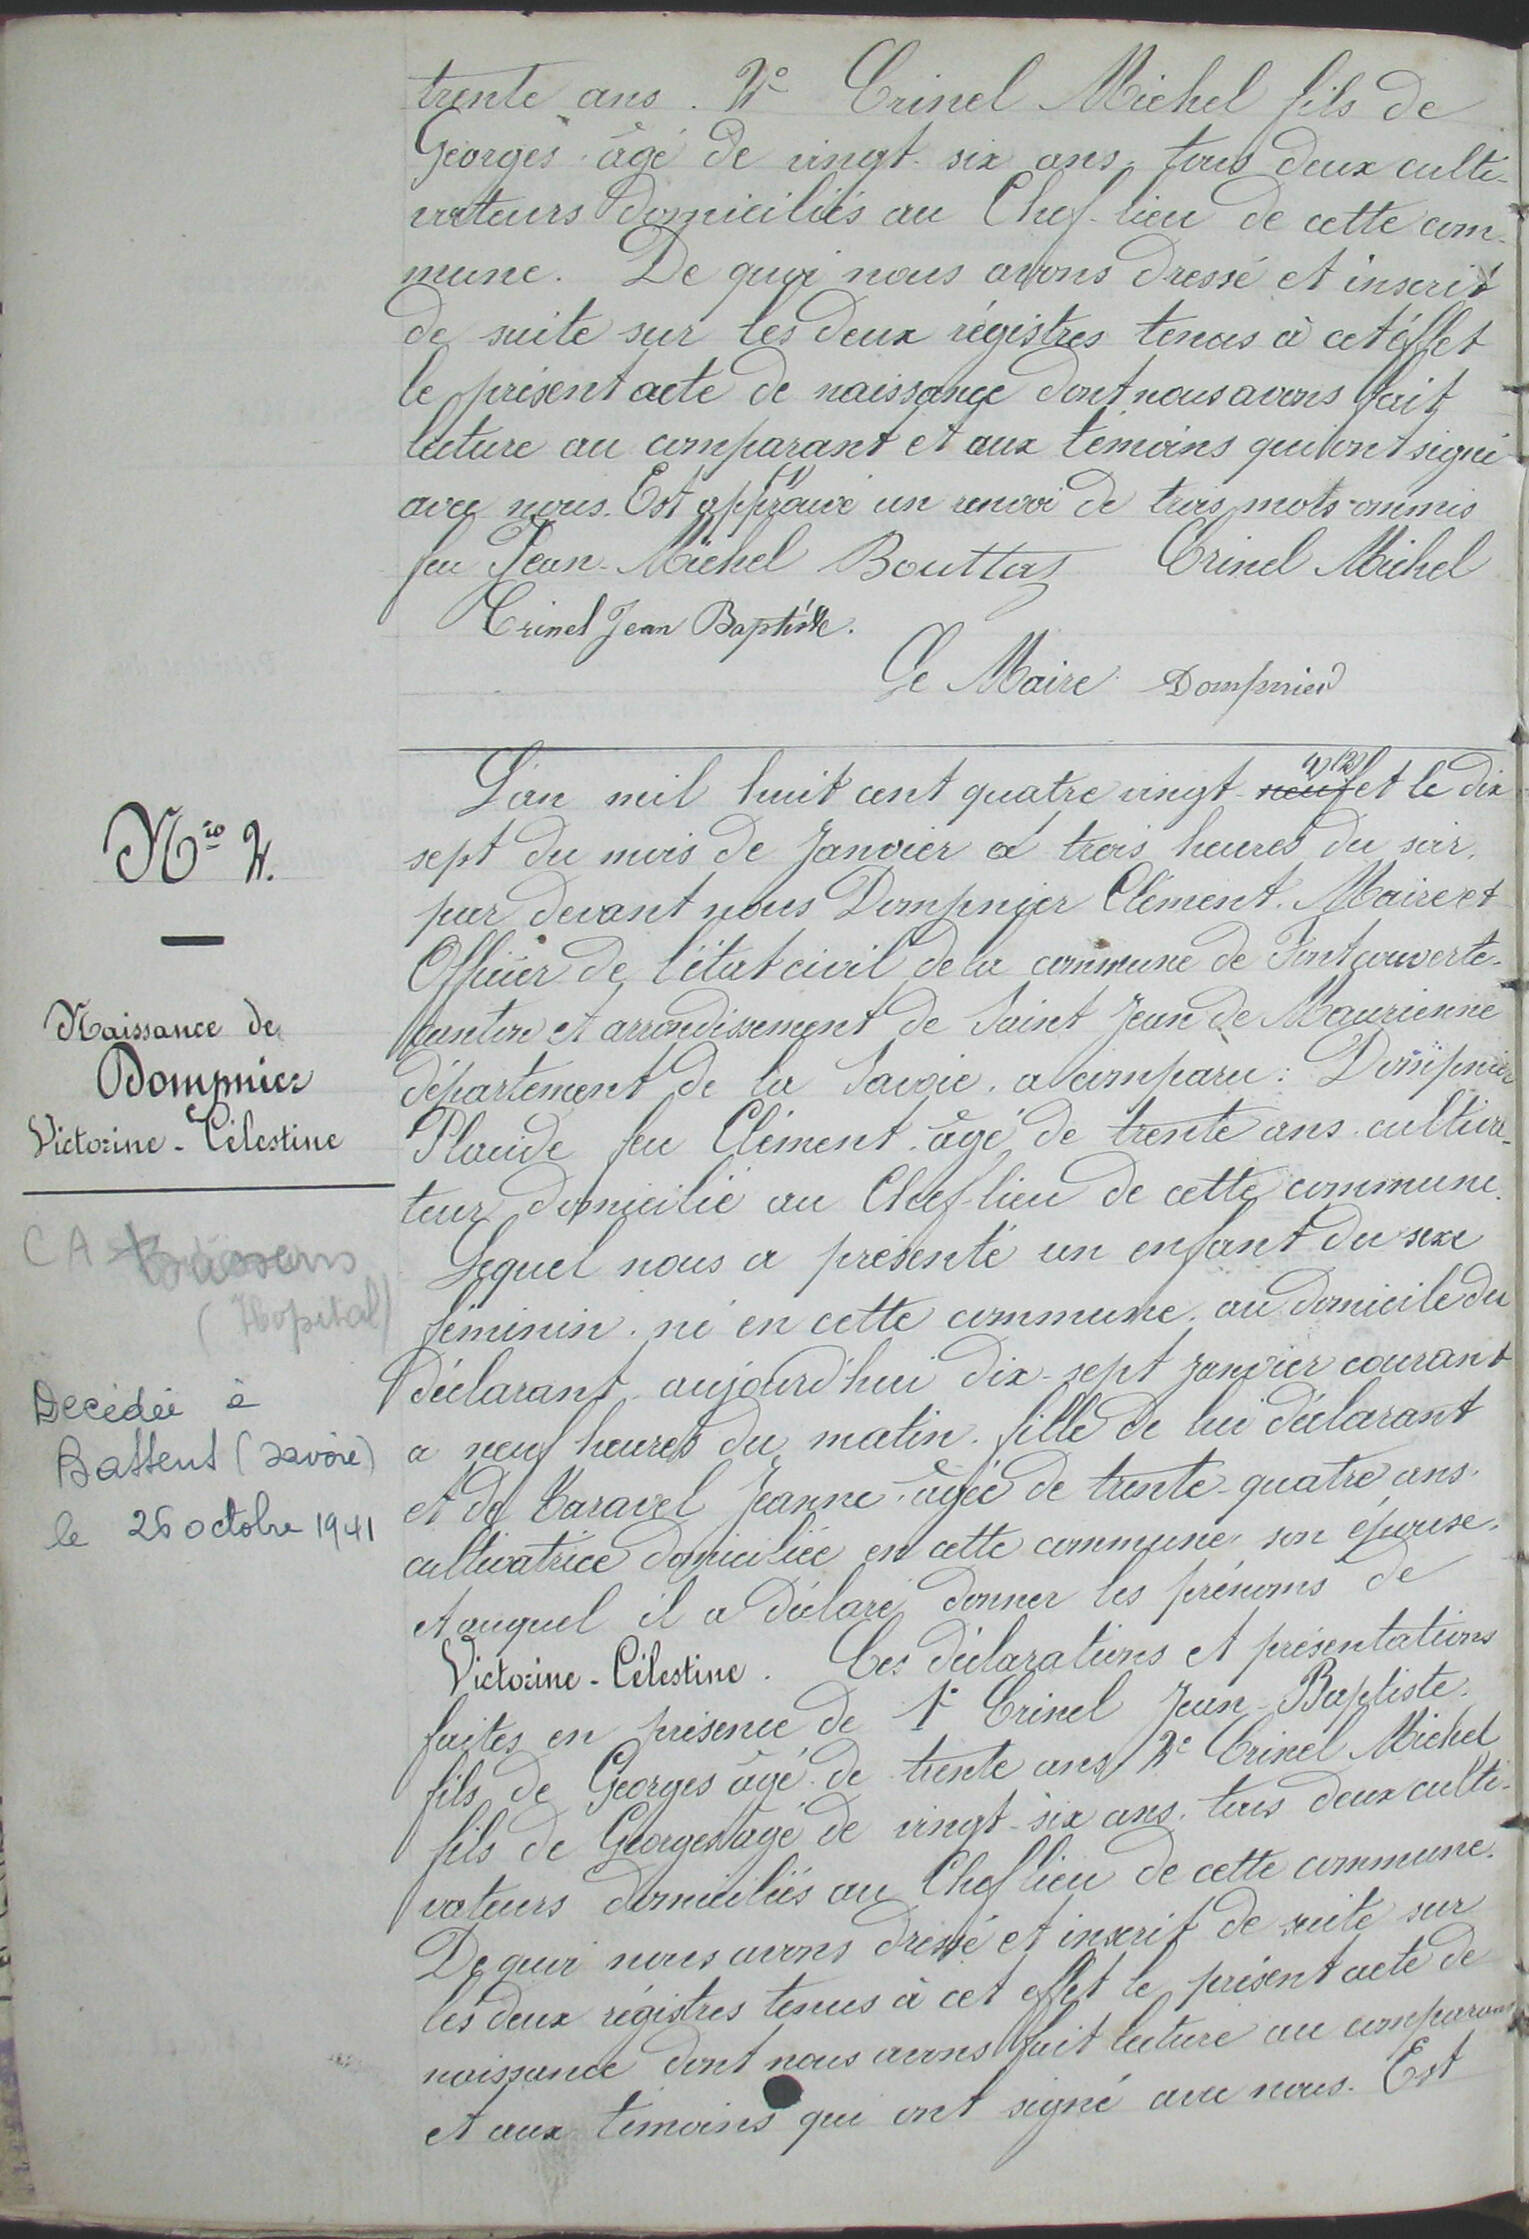 trente ans. 2° Crinel Michel fils de
Georges âgé de vingt-six ans, tous deux culti-
vateurs domiciliés au Chef-lieu de cette com-
mune. De quoi nous avons dressé et inscrit
de suite sur les deux régistres tenus à cet effet
le présent acte de naissance dont nous avons fait
lecture au comparant et aux témoins qui ont signé
avec nous. Est approuvé (1) un renvoi de trois mots ommis
feu Jean-Michel Bouttaz Crinel Michel
Crinel Jean Baptiste.
Le Maire Dompnier
N.ro 2.
Naissance de
Dompnier
Victorine-Célestine
CA
(Hopital)
Décédée à
Bassens (Savoie)
le 26 octobre 1941
L'an mil huit cent quatre vingt-neuf (1)(2) et le dix
sept du mois de Janvier à trois heures du soir,
par devant nous Dompnier Clément. Maire et
Officier de l'état civil de la commune de Fontcouverte-
canton et arrondissement de Saint Jean de Maurienne
département de la Savoie. a comparu: Dompnier
Placide feu Clément âgé de trente ans cultiva-
teur domicilié au Chef-lieu de cette commune.
Lequel nous a présenté un enfant du sexe
féminin. né en cette commune, au domicile du
déclarant aujourd'hui dix-sept janvier courant
a neuf heures du matin. fille de lui déclarant
et de Caravel Jeanne âgée de trente-quatre ans.
cultivatrice domiciliée en cette commune son épouse.
et auquel il a déclaré donner les prénoms de
Victorine-Célestine. Ces déclarations et présentations
faites en présence de 1° Crinel Jean-Baptiste.
fils de Georges âgé de trente ans 2° Crinel Michel
fils de Georges âgé de vingt-six ans. tous deux culti-
vateurs domiciliés au Chef lieu de cette commune.
De quoi nous avons dressé et inscrit de suite sur
les deux régistres tenus à cet effet le présent acte de
naissance dont nous avons fait lecture au comparant
et aux témoins qui ont signé avec nous. Est